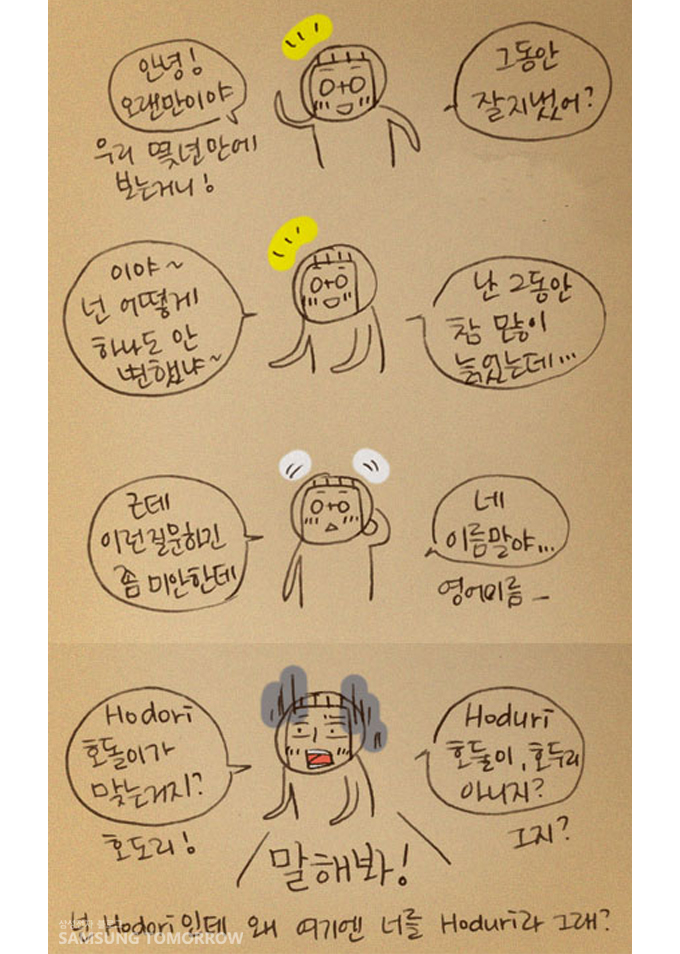 안녕!
오랜만이야
우리 몇년만에
보는거니!
그동안
잘지냈어?
이야~
넌 어떻게
하나도 안
변했냐~
난 그동안
참 많이
늙었는데...
근데
이런질문하긴
좀 미안한데
네
이름말야...
영어이름 _
Hodori
호돌이가
맞는거지?
호도리!
Hoduri
호둘이, 호두리
아니지?
그지?
말해봐!
넌 Hodori인데 왜 여기엔 너를 Hoduri라 그래?
SAMSUNG TOMORROW